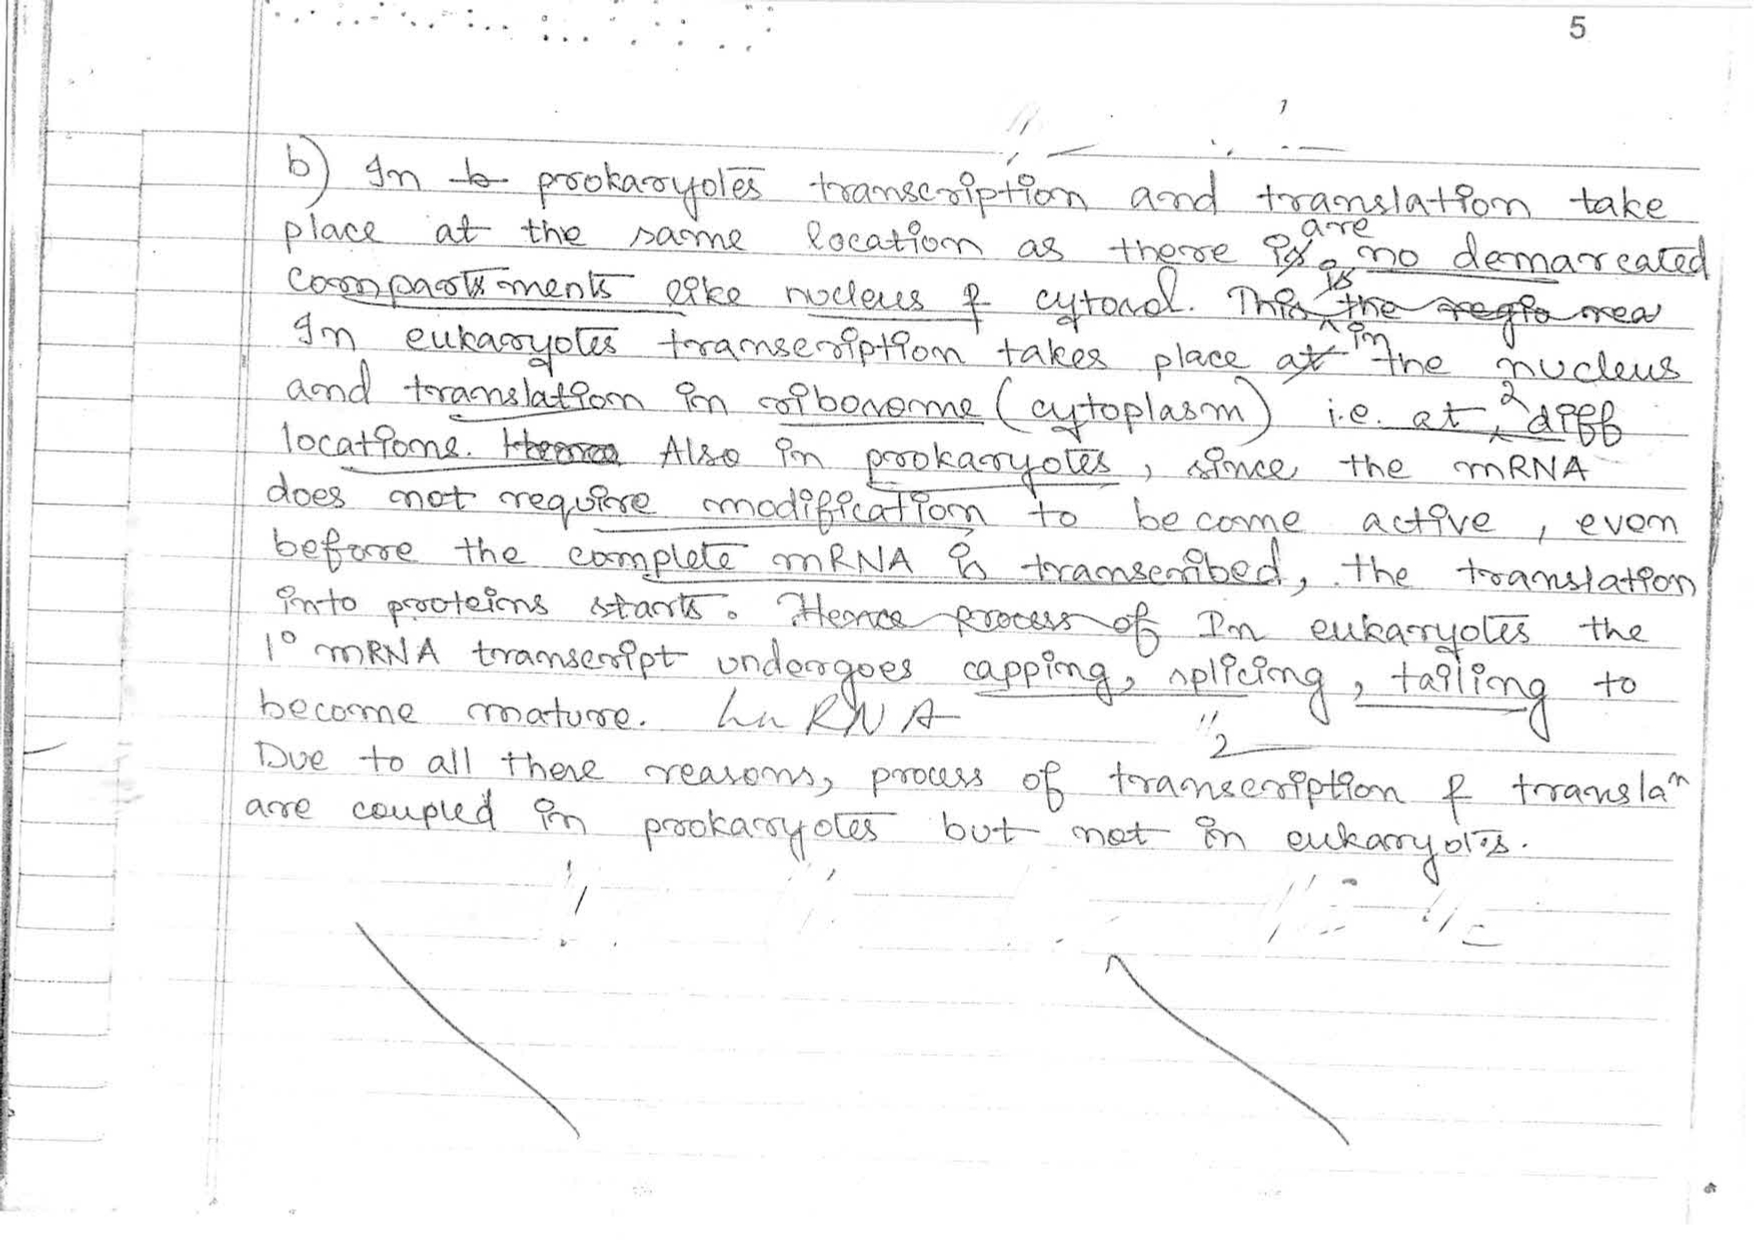 5
b) In b prokaryotes transcription and translation take
place at the same location as there is are no demarcated
compartments like nucleus & cytosol. This is the regio rea
In eukaryotes transcription takes place at in the nucleus
and translation in ribosome (cytoplasm) i.e. at 2 diff
locations. Hence Also in prokaryotes, since the mRNA
does not require modification to become active, even
before the complete mRNA is transcribed, the translation
into proteins starts. Hence process of In eukaryotes the
1° mRNA transcript undergoes capping, splicing, tailing to
become mature. hnRNA
Due to all these reasons, process of transcription & translaⁿ
are coupled in prokaryotes but not in eukaryotes.